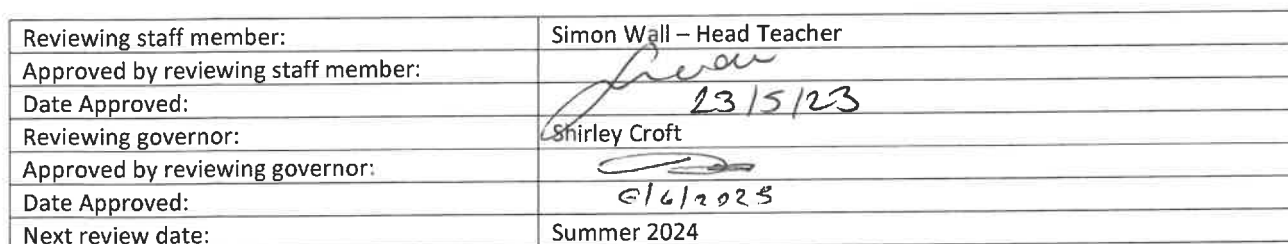 Reviewing staff member: Simon Wall – Head Teacher
Approved by reviewing staff member:
Date Approved: 23/5/23
Reviewing governor: Shirley Croft
Approved by reviewing governor:
Date Approved:
Next review date: Summer 2024